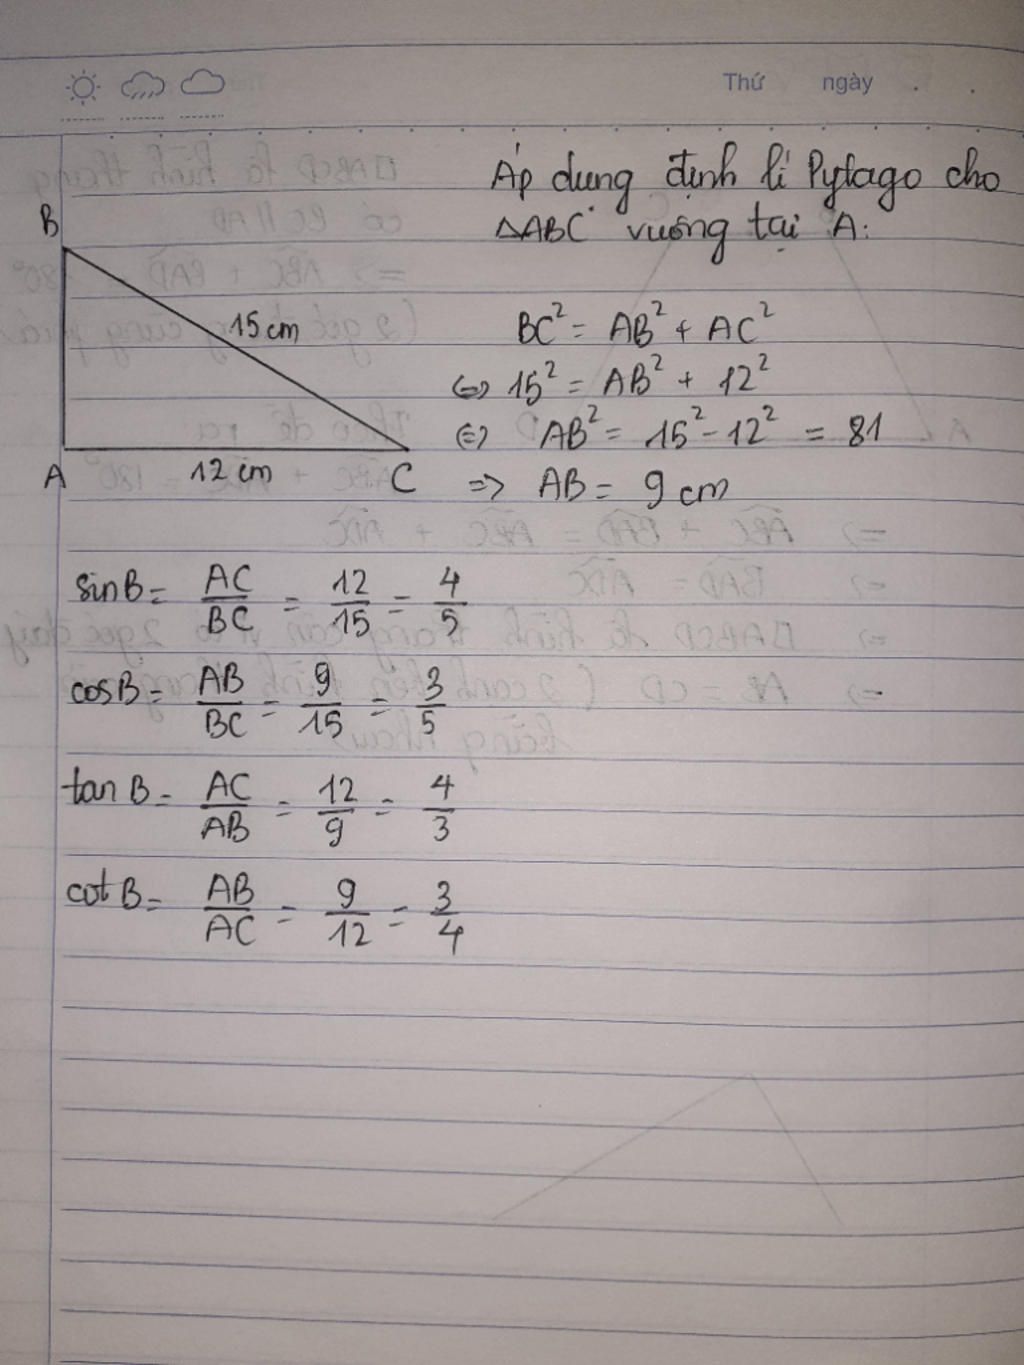 Thứ ngày
Áp dụng định lí Pytago cho
△ABC vuông tại A:
B
15 cm
A
12 cm
C
BC² = AB² + AC²
⇔ 15² = AB² + 12²
⇔ AB² = 15² - 12² = 81
⇒ AB = 9 cm
sin B = AC/BC = 12/15 = 4/5
cos B = AB/BC = 9/15 = 3/5
tan B = AC/AB = 12/9 = 4/3
cot B = AB/AC = 9/12 = 3/4